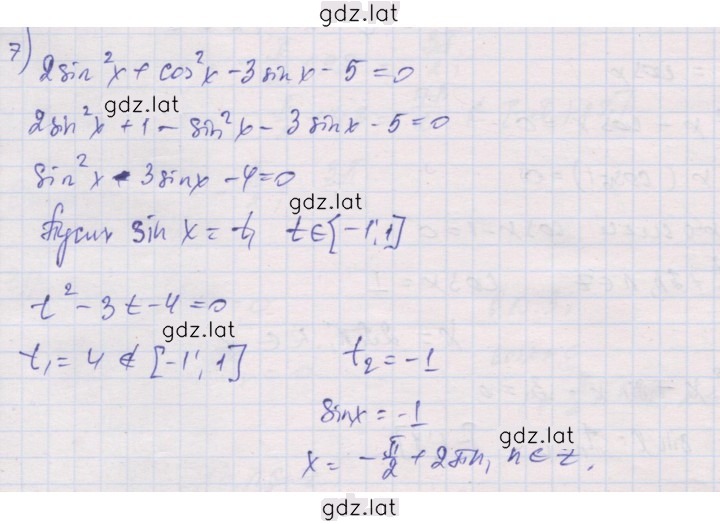 gdz.lat
7) 2sin²x + cos²x - 3sinx - 5 = 0
gdz.lat
2sin²x + 1 - sin²x - 3sinx - 5 = 0
sin²x - 3sinx - 4 = 0
gdz.lat
Пусть sin x = t, t ∈ [-1; 1]
t² - 3t - 4 = 0
gdz.lat
t₁ = 4 ∉ [-1; 1] t₂ = -1
sinx = -1
gdz.lat
x = -π/2 + 2πn, n ∈ z.
gdz.lat